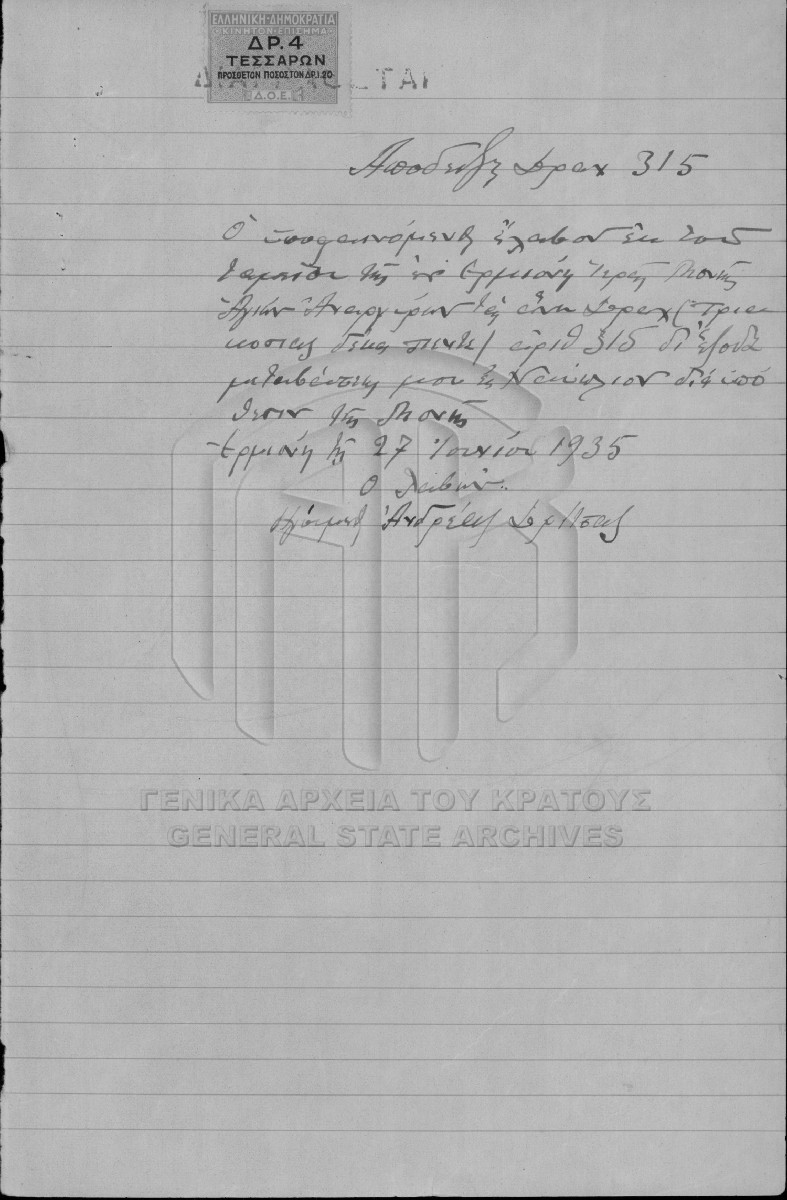 ΕΛΛΗΝΙΚΗ·ΔΗΜΟΚΡΑΤΙΑ
ΚΙΝΗΤΟΝ·ΕΠΙΣΗΜΑ
ΔΡ. 4
ΤΕΣΣΑΡΩΝ
ΠΡΟΣΘΕΤΟΝ ΠΟΣΟΣΤΟΝ ΔΡ.1.20
Δ.Ο.Ε.
Αποδειξις Δραχ 315
Ο υποφαινόμενος έλαβον εκ του
ταμείου της εν Ερμιόνη Ιεράς Μονής
Αγίων Αναργύρων τας άνω Δραχ (τρια
κοσίας δέκα πέντε) αριθ 315 δι έξοδα
μεταβάσεως μου εις Ναύπλιον δι υπό
θεσιν της Μονής
Ερμιόνη τη 27 Ιουνίου 1935
Ο λαβών
Ηγούμενος Ανδρέας
ΓΕΝΙΚΑ ΑΡΧΕΙΑ ΤΟΥ ΚΡΑΤΟΥΣ
GENERAL STATE ARCHIVES